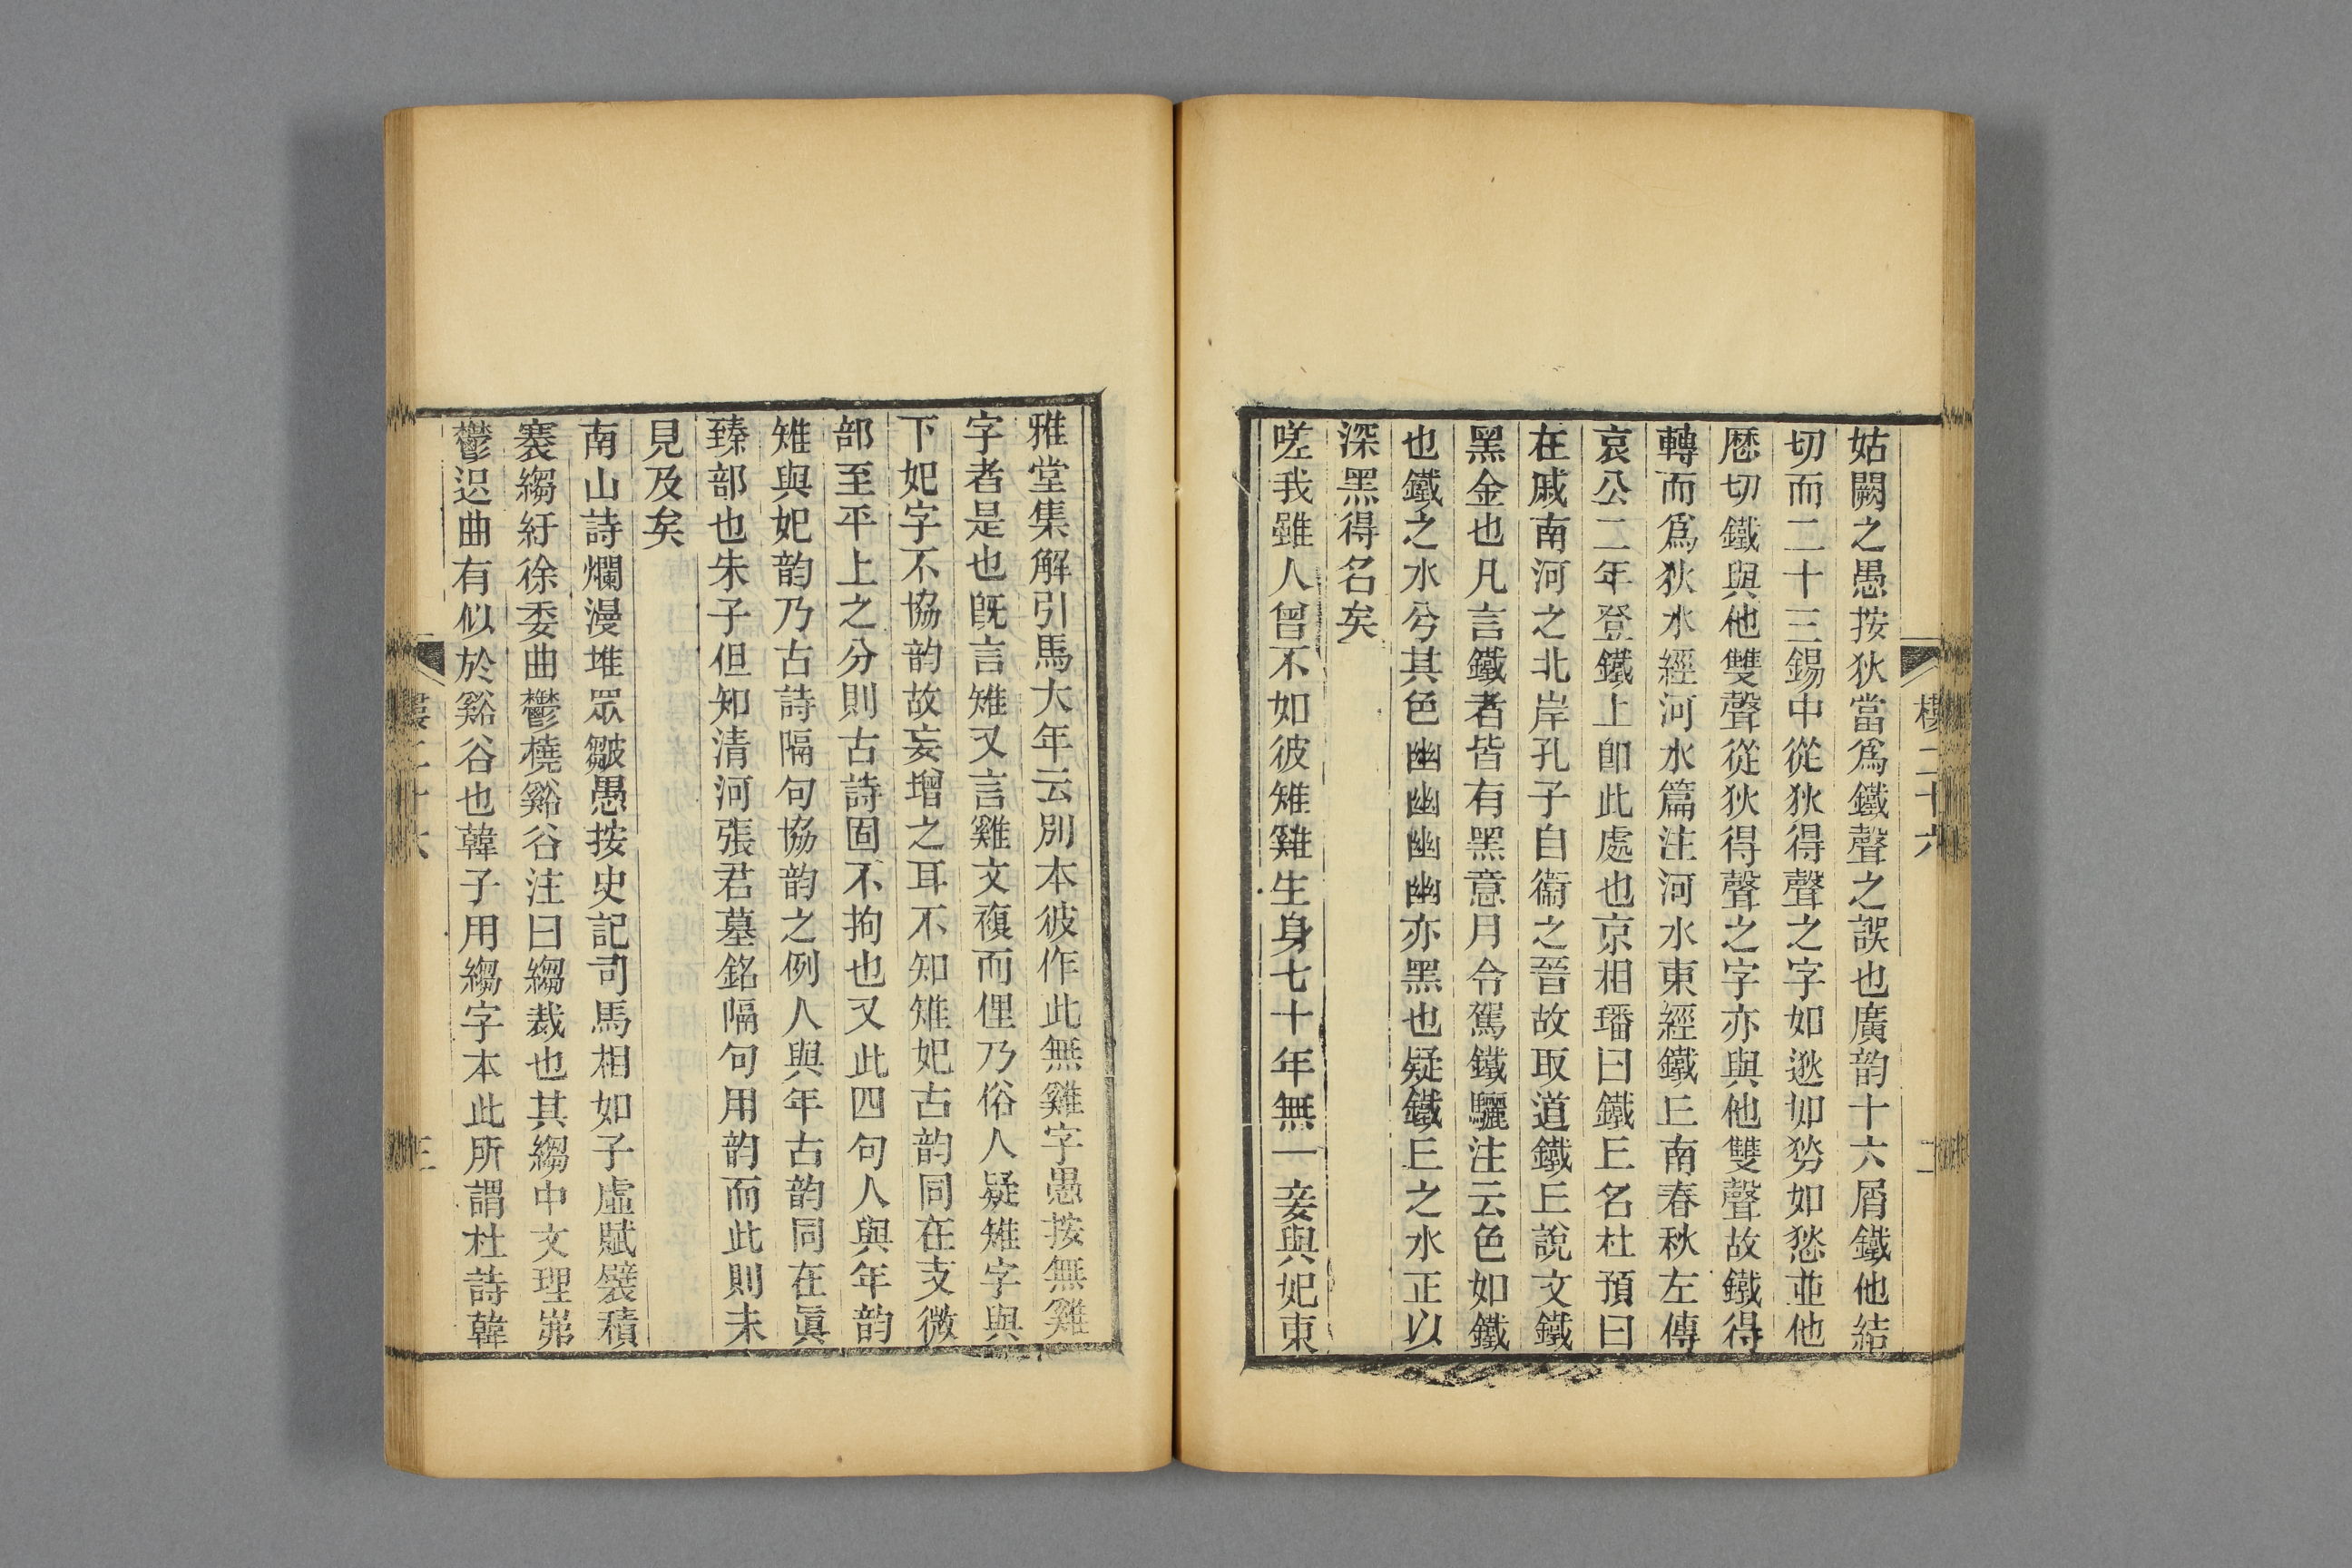 姑闕之愚按狄當爲鐵聲之誤也廣韵十六屑鐵他結
切而二十三錫中從狄得聲之字如逖如㔁如悐並他
厯切鐵與他雙聲從狄得聲之字亦與他雙聲故鐵得
轉而爲狄水經河水篇注河水東經鐵丘南春秋左傳
哀公二年登鐵上卽此處也京相璠曰鐵丘名杜預曰
在戚南河之北岸孔子自衞之晉故取道鐵丘說文鐵
黑金也凡言鐵者皆有黑意月令駕鐵驪注云色如鐵
也鐵之水兮其色幽幽幽幽亦黑也疑鐵丘之水正以
深黑得名矣
嗟我雖人曾不如彼雉雞生身七十年無一妾與妃東
雅堂集解引馬大年云別本彼作此無雞字愚按無雞
字者是也旣言雉又言雞文複而俚乃俗人疑雉字與
下妃字不協韵故妄增之耳不知雉妃古韵同在支微
部至平上之分則古詩固不拘也又此四句人與年韵
雉與妃韵乃古詩隔句協韵之例人與年古韵同在眞
臻部也朱子但知淸河張君墓銘隔句用韵而此則未
見及矣
南山詩爛漫堆眾皺愚按史記司馬相如子虛賦襞積
褰縐紆徐委曲鬱橈谿谷注曰縐裁也其縐中文理茀
鬱迟曲有似於谿谷也韓子用縐字本此所謂杜詩韓
樓二十六
二
三